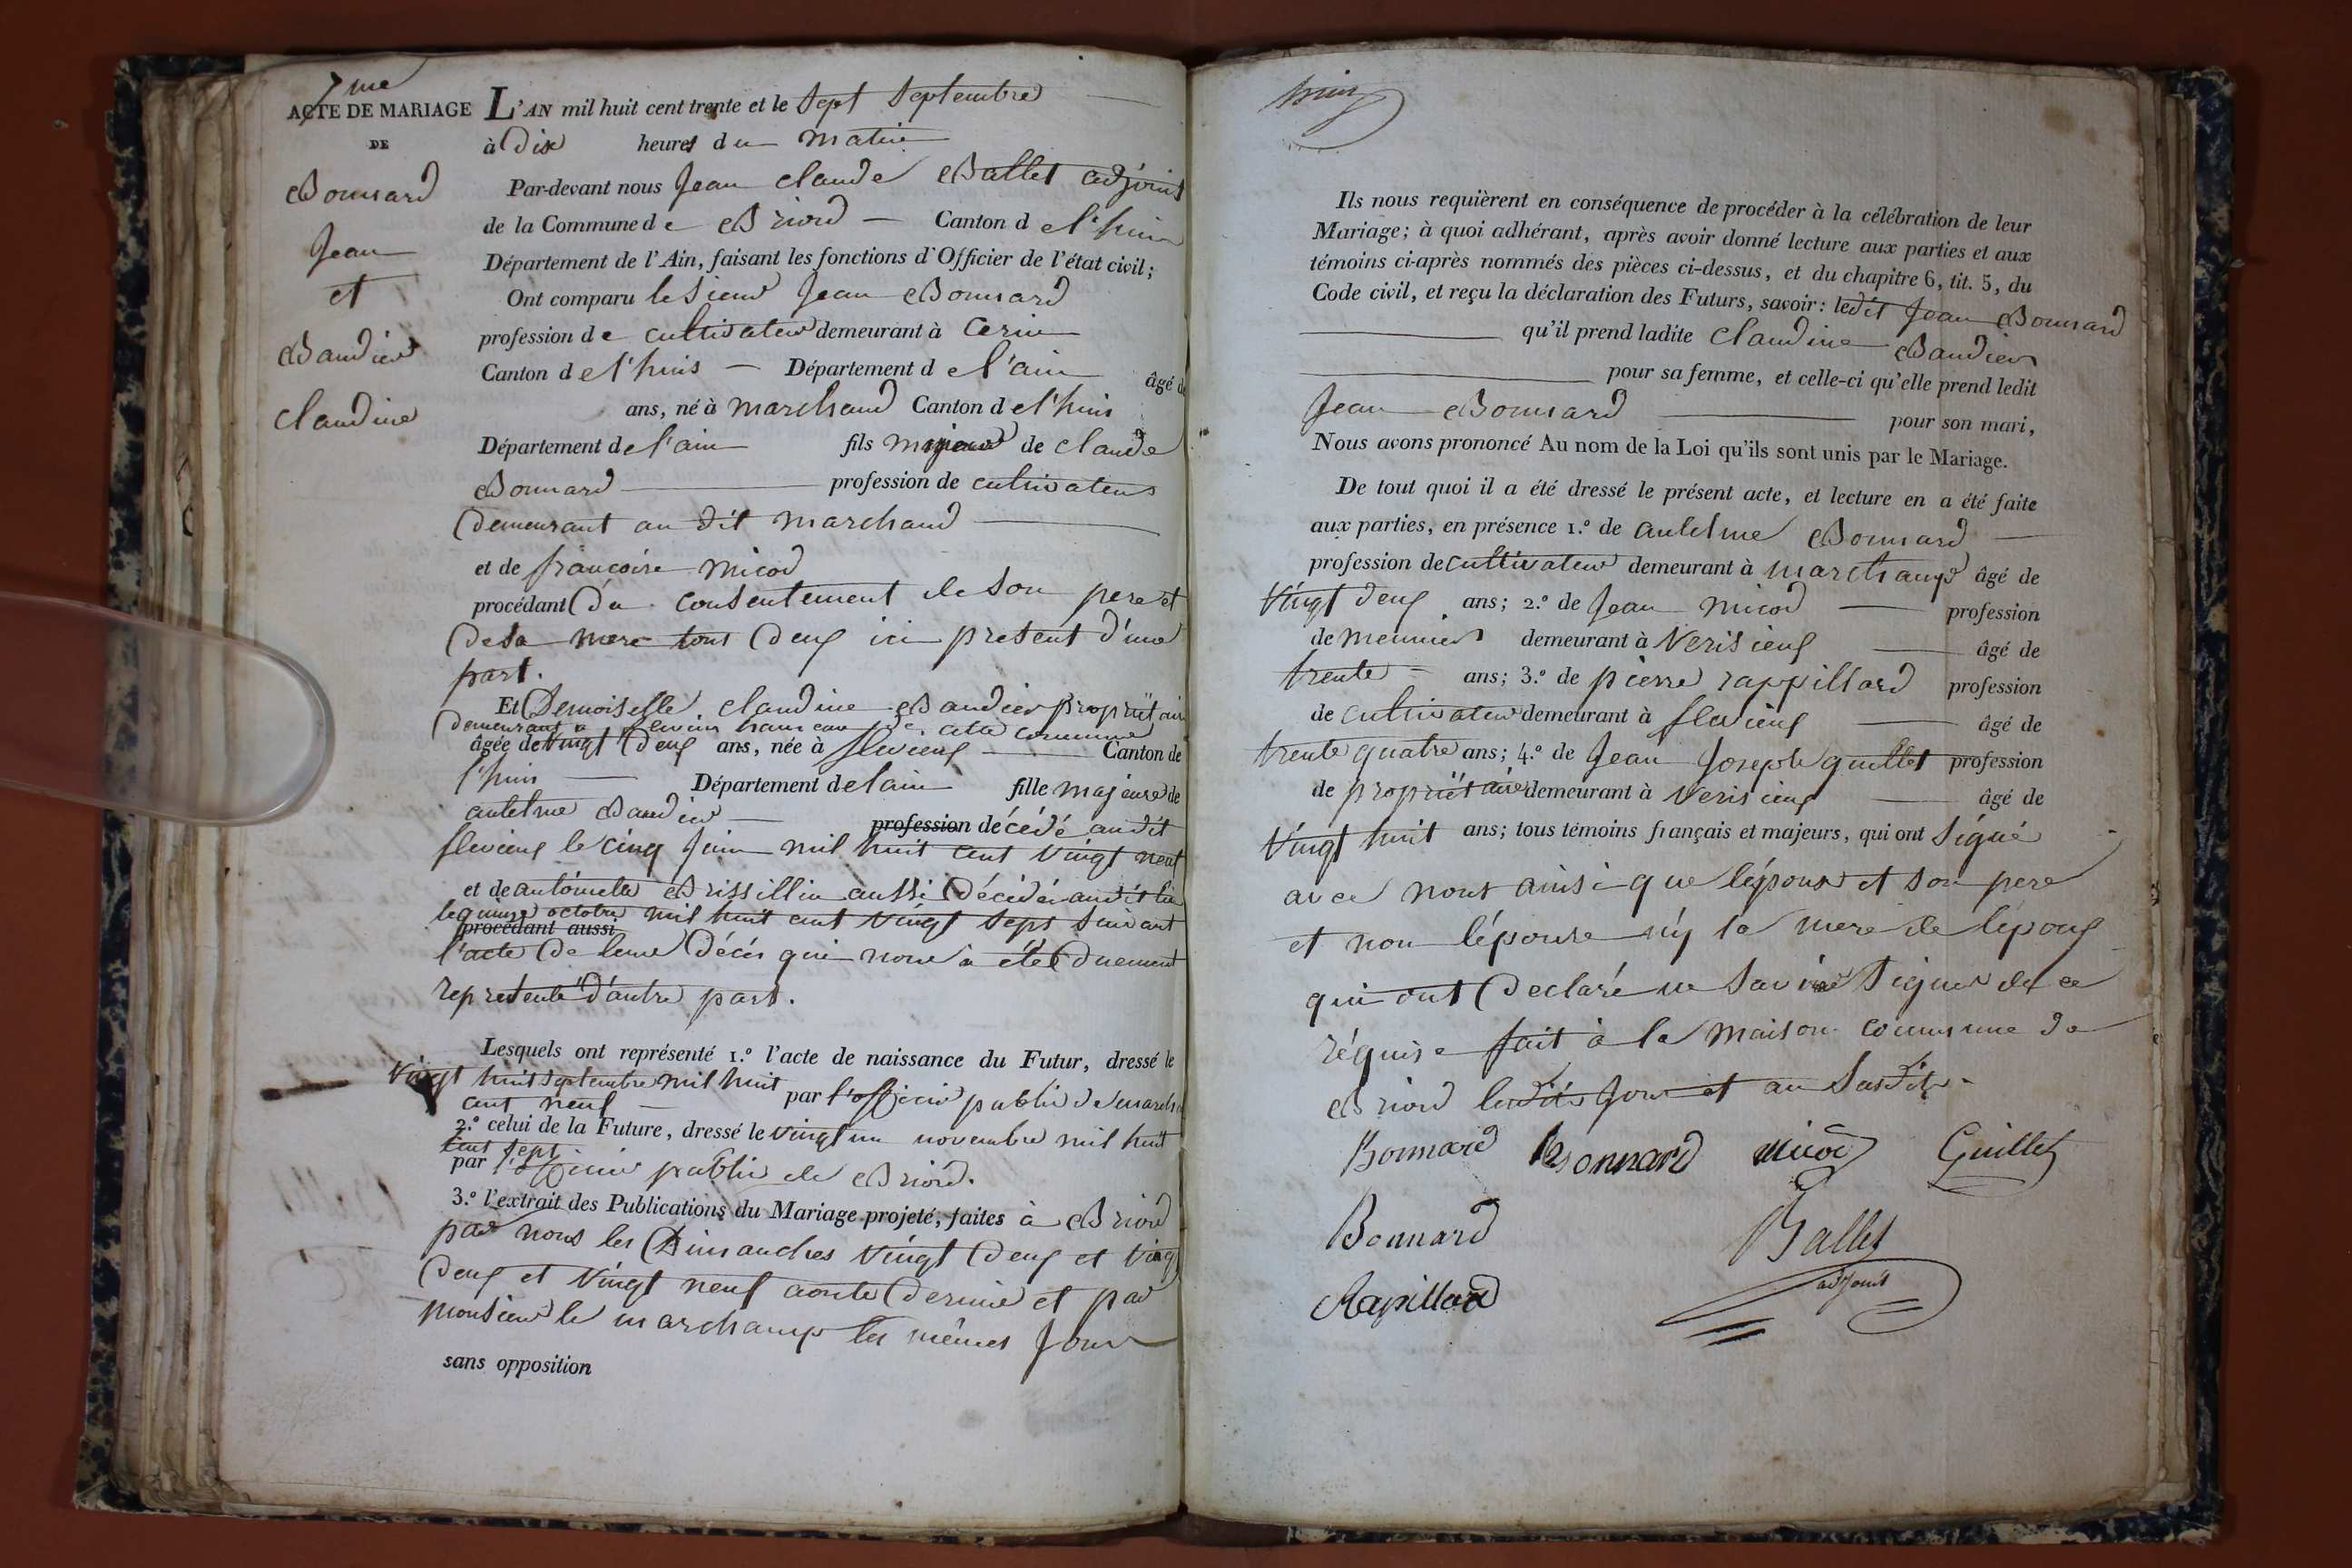 7me
ACTE DE MARIAGE
DE
Bonnard
Jean
et
Baudier
Claudine
L'AN mil huit cent trente et le Sept Septembre
à Dix heures du matin
Par-devant nous Jean Claude Ballet adjoint
de la Commune de Briord Canton de l'huis
Département de l'Ain, faisant les fonctions d'Officier de l'état civil;
Ont comparu le Sieur Jean Bonnard
profession de cultivateur demeurant à Cerin
Canton de l'huis Département de l'ain âgé de
ans, né à marchand Canton de l'huis
Département de l'ain fils majeur de claude
Bonnard profession de cultivateur
Demeurant au dit marchand
et de francoise micod
procédant Du consentement de son pere et
De sa mere tous Deux ici present d'une
part.
Et Demoiselle claudine Baudier propriétaire
Demeurant à flevieux hameau de cette commune
âgée de vingt Deux ans, née à flevieux Canton de
l'huis Département de l'ain fille majeure de
antelme Baudier profession décédé audit
flevieux le cinq Juin mil huit cent vingt neuf
et de antoinette Brissillin aussi Décédée audit lieu
le quinze octobre mil huit cent vingt sept suivant
procédant aussi
l'acte De leur Décès qui nous a été Duement
representé d'autre part.
Lesquels ont représenté 1.º l'acte de naissance du Futur, dressé le
vingt huit septembre mil huit
cent neuf par l'officier public De march
2.º celui de la Future, dressé le vingt un novembre mil huit
cent sept
par l'officier public de Briord.
3.º l'extrait des Publications du Mariage projeté, faites à Briord
par nous les Dimanches vingt Deux et vingt
Deux et vingt neuf aoute Dernier et par
monsieur le marchamp les mêmes Jour
sans opposition
Ils nous requièrent en conséquence de procéder à la célébration de leur
Mariage; à quoi adhérant, après avoir donné lecture aux parties et aux
témoins ci-après nommés des pièces ci-dessus, et du chapitre 6, tit. 5, du
Code civil, et reçu la déclaration des Futurs, savoir: ledit Jean Bonnard
qu'il prend ladite Claudine Baudier
pour sa femme, et celle-ci qu'elle prend ledit
Jean Bonnard pour son mari,
Nous avons prononcé Au nom de la Loi qu'ils sont unis par le Mariage.
De tout quoi il a été dressé le présent acte, et lecture en a été faite
aux parties, en présence 1.º de antelme Bonnard
profession de cultivateur demeurant à marchamp âgé de
vingt deux ans; 2.º de Jean micod profession
de meunier demeurant à Verisieux âgé de
trente ans; 3.º de pierre rappillard profession
de cultivateur demeurant à flevieux âgé de
trente quatre ans; 4.º de Jean Joseph guillet profession
de propriétaire demeurant à Verisieux âgé de
vingt huit ans; tous témoins français et majeurs, qui ont signé
avec nous ainsi que l'époux et son pere
et non l'épouse n'y la mere de l'époux
qui ont Declaré ne savoir signer de ce
réquis fait à la maison commune de
Briord lesdits Jour et an susdits.
Bonnard Bonnard Micod Guillet
Bonnard Ballet
adjoint
Rapillard